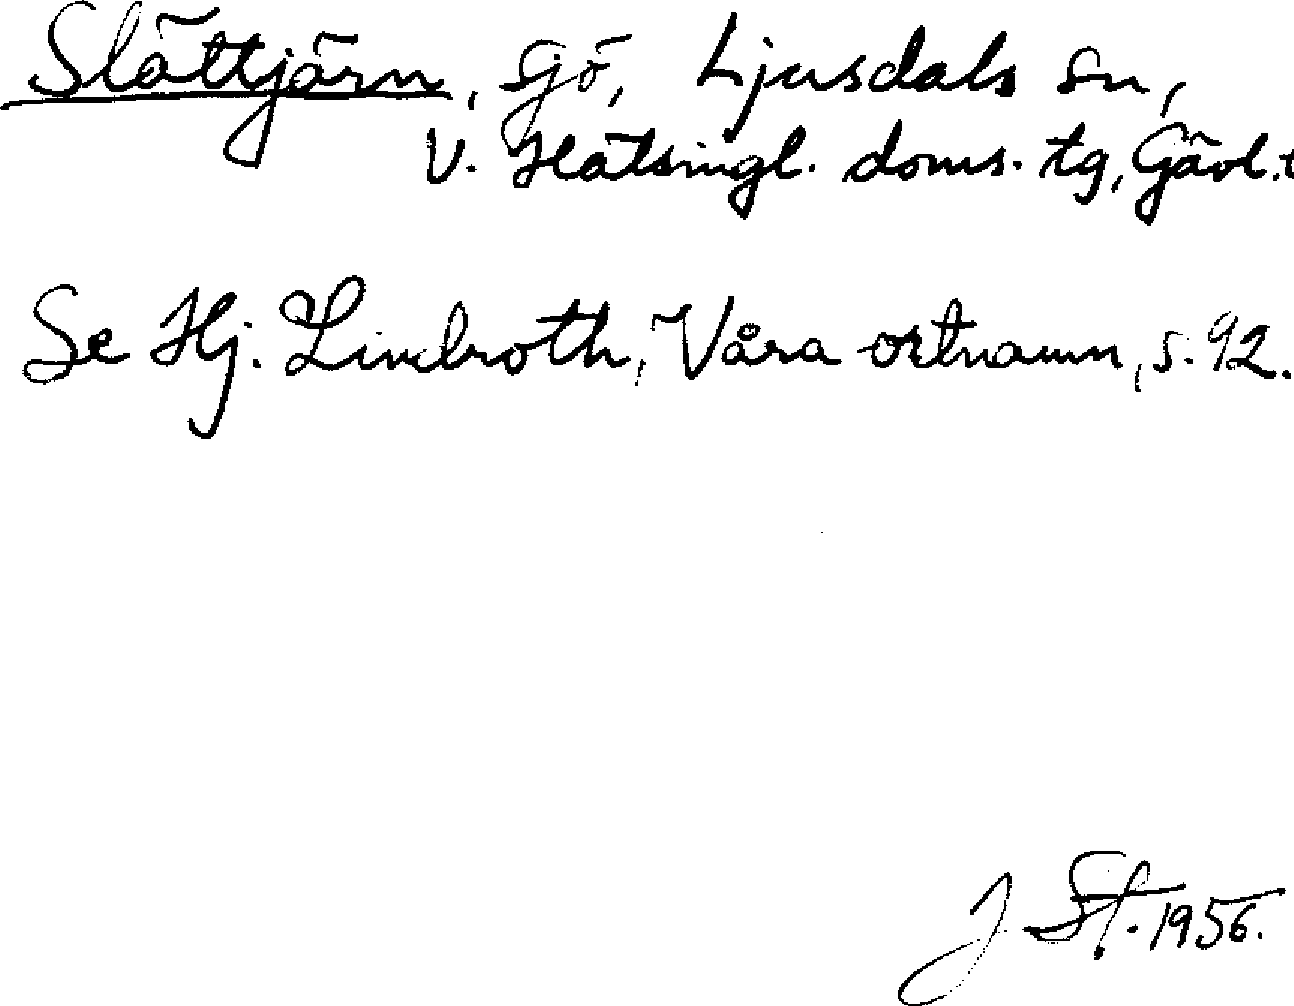 Slättjärn, sjö, Ljusdals sn,
V. Hälsingl. doms. tg, Gävl. l
Se Hj. Lindroth, Våra ortnamn, s. 92.
J St. 1956.